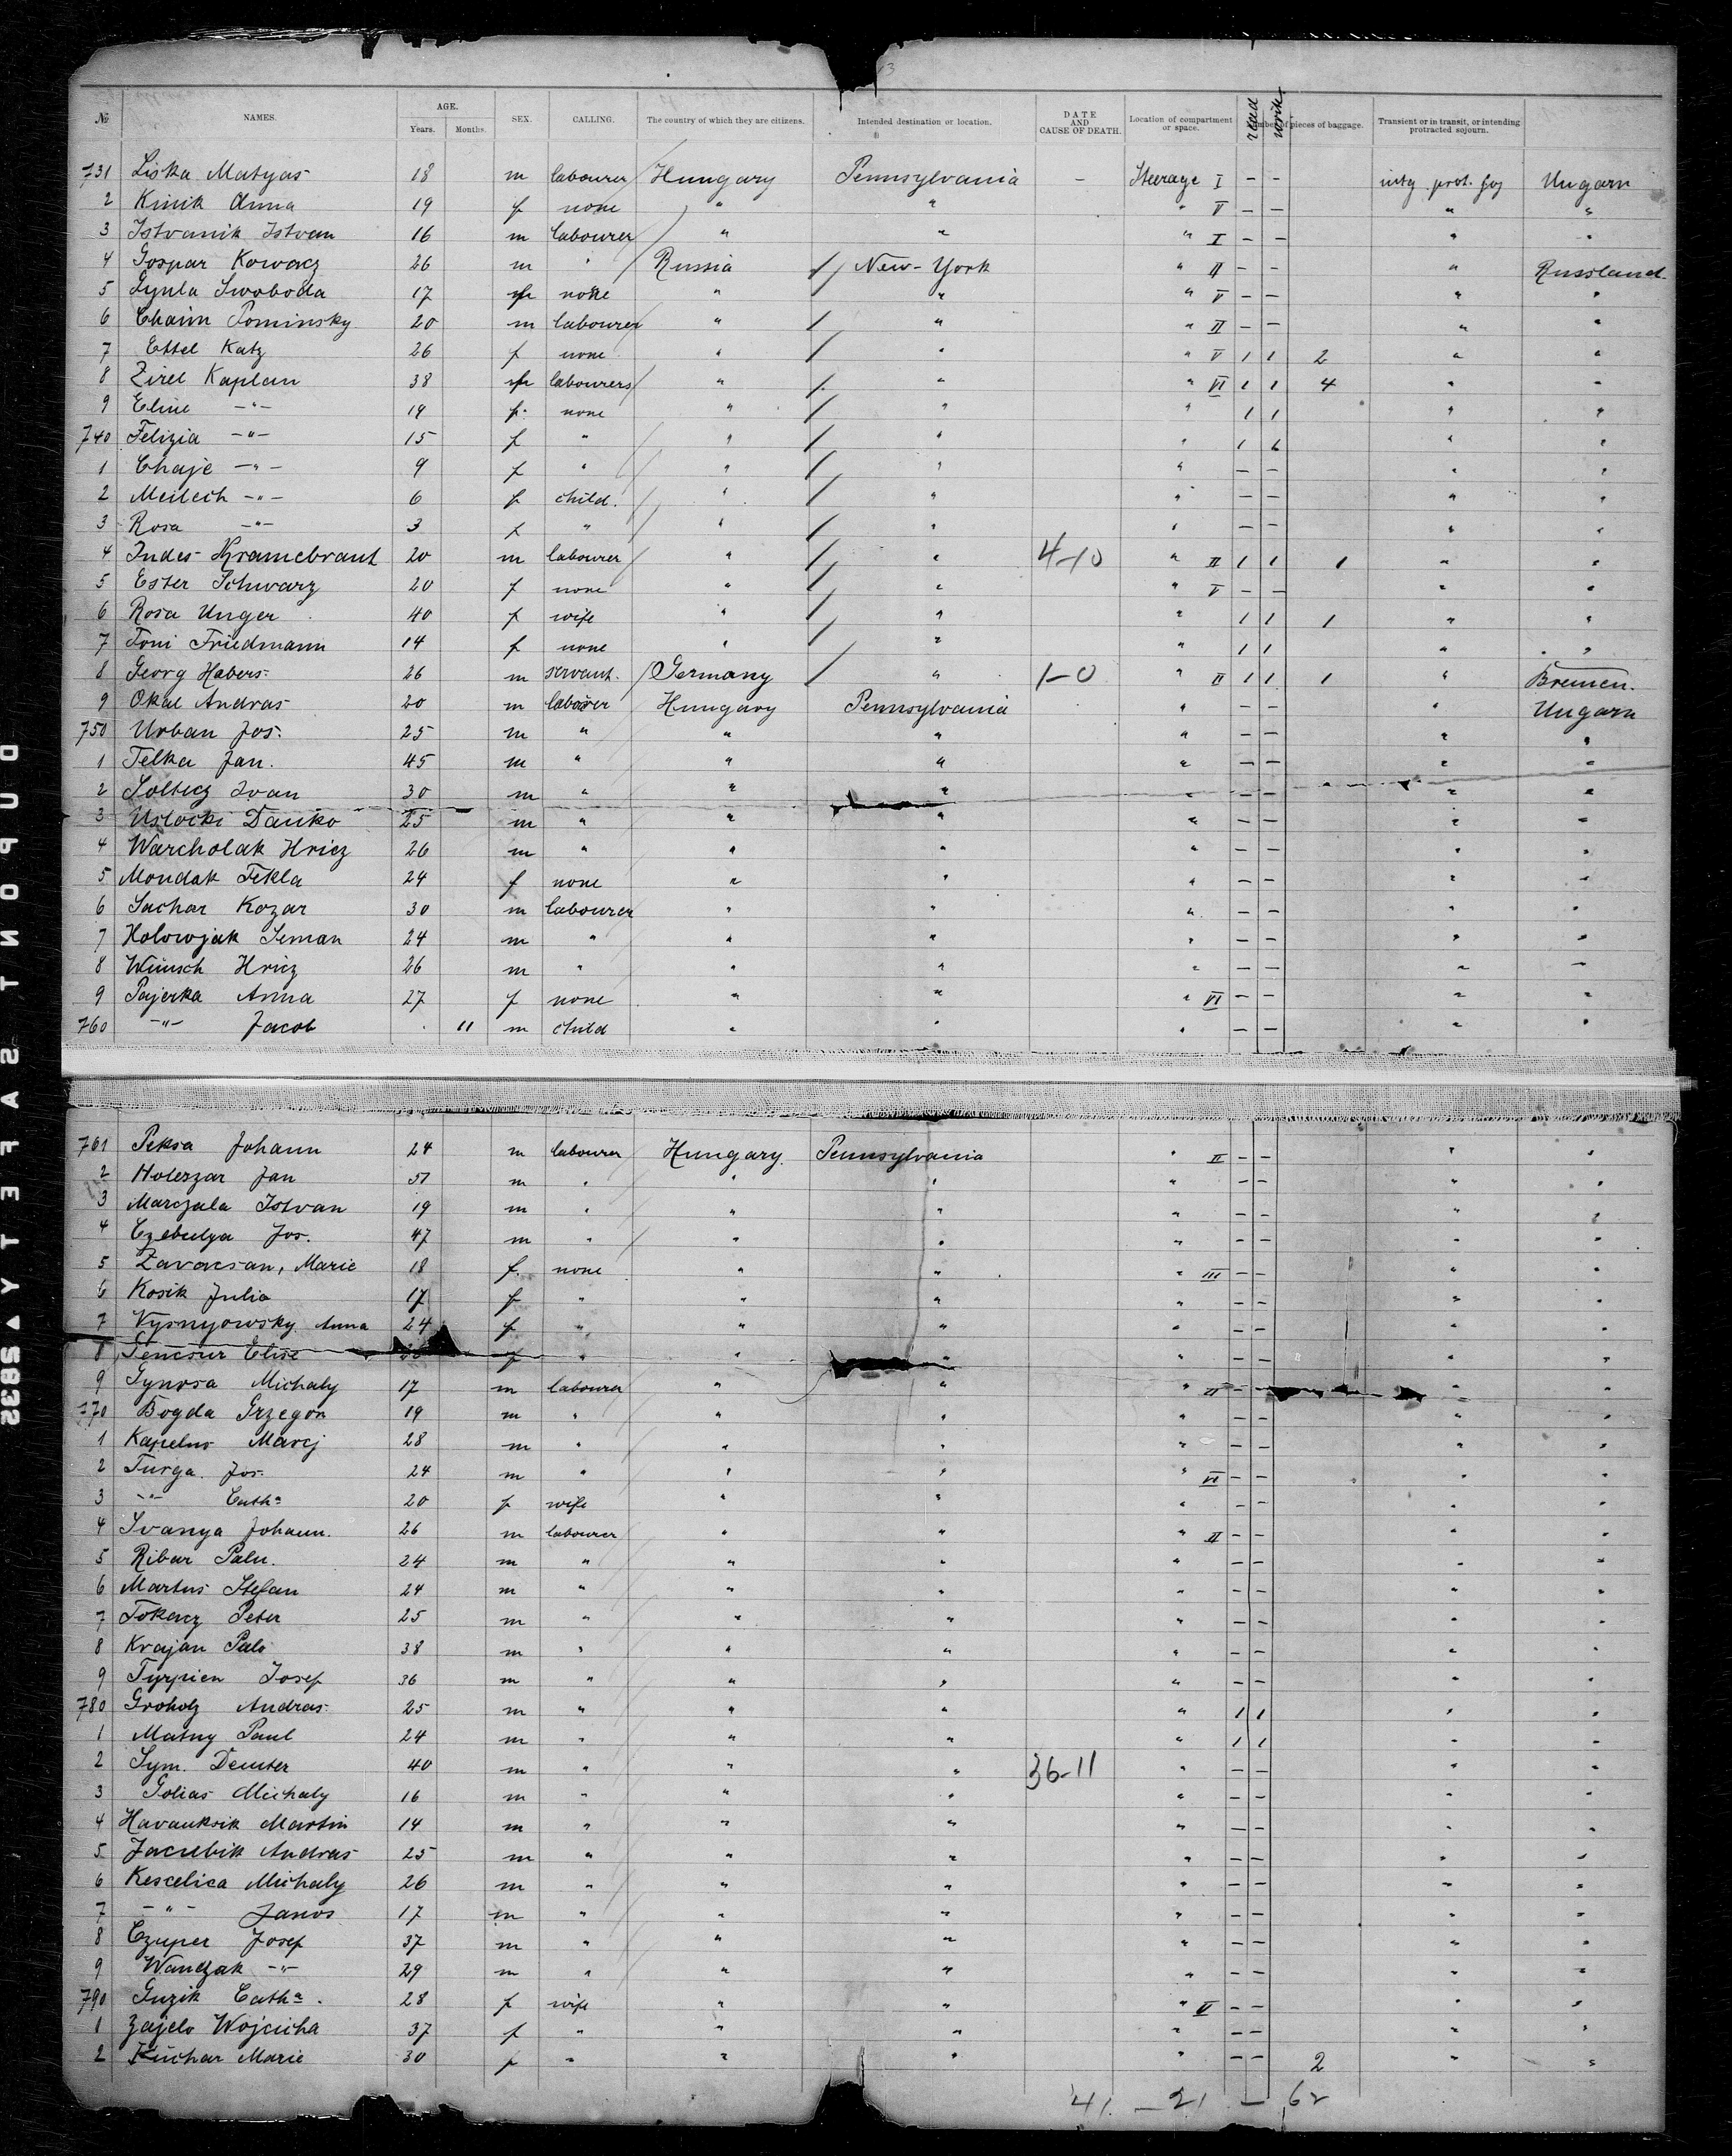 № NAMES. AGE. Years. Months. SEX. CALLING. The country of which they are citizens. Intended destination or location. DATE AND CAUSE OF DEATH. Location of compartment or space. read write Number of pieces of baggage. Transient or in transit, or intending protracted sojourn.
731 Liska Matyas 18 m labourer Hungary Pennsylvania - Steerage I - - prot. Ungarn
2 Kinik Anna 19 f none " " " V - - " "
3 Istvanik Istvan 16 m labourer " " " I - - " "
4 Gospar Kowacz 26 m " Russia New-York " II - - " Russland
5 Swoboda 17 f none " " " V - - " "
6 Chaim Pominsky 20 m labourer " " " II - - " "
7 Ettel Katz 26 f none " " " V 1 1 2 " "
8 Zirel Kaplan 38 f labourers " " " VI 1 1 4 " "
9 Eline -"- 19 f. none " " " 1 1 " "
740 Felizia -"- 15 f " " " " 1 " "
1 Chaje -"- 9 f " " " " - - " "
2 Meilech -"- 6 f child. " " " - - " "
3 Rosa -"- 3 f " " " " - - " "
4 Judes Kramebrant 20 m labourer " " 4-10 " II 1 1 1 " "
5 Ester Schwarz 20 f none " " " V - - " "
6 Rosa Unger 40 f wife " " " 1 1 1 " "
7 Toni Friedmann 14 f none " " " 1 1 " "
8 Georg Habers 26 m servant. Germany " 1-0 " II 1 1 1 " Bremen.
9 Okal Andras 20 m laborer Hungary Pennsylvania " - - " Ungarn
750 Urban Jos. 25 m " " " " - - " "
1 Telka Jan. 45 m " " " " - - " "
2 Solticz Ivan 30 m " " " " - - " "
3 Uslocki Danko 25 m " " " " - - " "
4 Warcholak Hricz 26 m " " " " - - " "
5 Mondak Tekla 24 f none " " " - - " "
6 Sachar Kozar 30 m labourer " " " - - " "
7 Holowjak Seman 24 m " " " " - - " "
8 Wünsch Hricz 26 m " " " " - - " "
9 Pajerka Anna 27 f none " " " VI - - " "
760 -"- Jacob 11 m child " " " - - " "
761 Peksa Johann 24 m labourer Hungary. Pennsylvania " II - - " "
2 Holeszar Jan m " " " " - - " "
3 Marczala Istvan 19 m " " " " - - " "
4 Czebulya Jos. 47 m " " " " - - " "
5 Zavacsan, Marie 18 f. none " " " III - - " "
6 Kosik Julia 17 f " " " " - - " "
7 Vysnyowsky Anna 24 f " " " " - - " "
8 Sencsur Elise f " " " " - - " "
9 Gynosa Michaly 17 m labourer " " " II - " "
770 Bogda Grzegor 19 m " " " " - - " "
1 Kapelus Marcj 28 m " " " " - - " "
2 Turga Jos. 24 m " " " " VI - - " "
3 -"- Cath. 20 f wife " " " - - " "
4 Ivanya Johann. 26 m labourer " " " II - - " "
5 Ribar Palu. 24 m " " " " - - " "
6 Martus Stefan 24 m " " " " - - " "
7 Tokacz Peter 25 m " " " " - - " "
8 Krajan Palo 38 m " " " " - - " "
9 Tyrpien Josef 36 m " " " " - - " "
780 Groholy Andras 25 m " " " " 1 1 " "
1 Matny Paul 24 m " " " " 1 1 " "
2 Sym. Demter 40 m " " " 36-11 " - - " "
3 Golias Michaly 16 m " " " " - - " "
4 Havanksik Martin 14 m " " " " - - " "
5 Jacubik Andras 25 m " " " " - - " "
6 Kescelica Michaly 26 m " " " " - - " "
7 -"- Janos 17 m " " " " - - " "
8 Czuper Josef 37 m " " " " - - " "
9 Wanczak -"- 29 m " " " " - - " "
790 Guzik Cath. 28 f wife " " " V - - " "
1 Zajelo Wojcicha 37 f " " " " - - " "
2 Kuchar Marie 30 f " " " " - - 2 " "
41. - 21 - 62
DUPONT SAFETY ▲ 2385